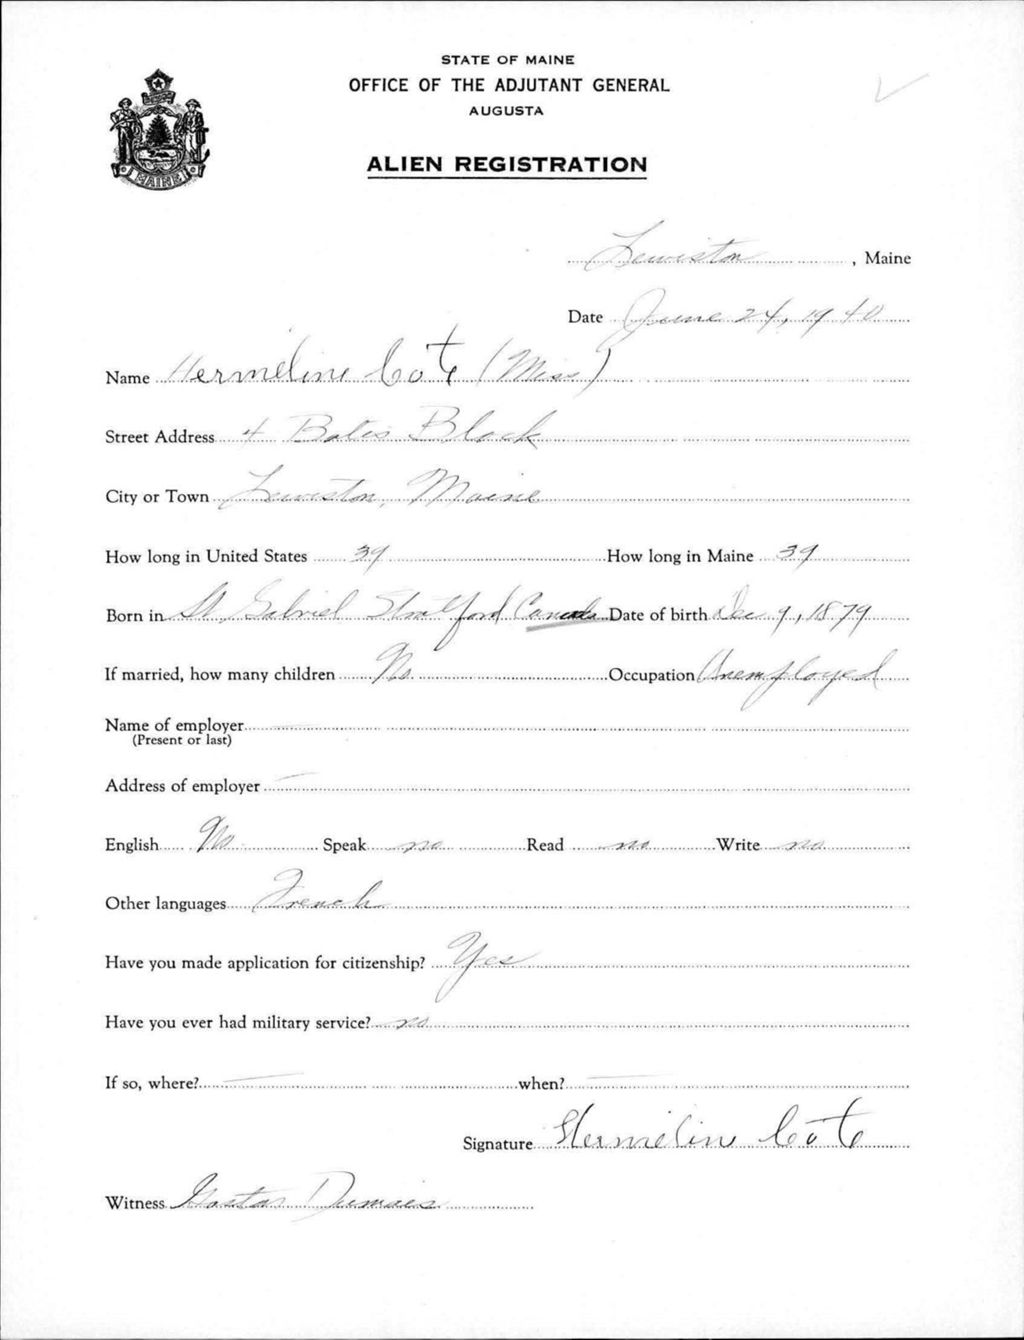 STATE OF MAINE
OFFICE OF THE ADJUTANT GENERAL
AUGUSTA
ALIEN REGISTRATION
MAINE
Lewiston, Maine
Date June 24, 1940
Name Hermeline Cote (Miss)
Street Address 4 Bates Block
City or Town Lewiston, Maine
How long in United States 39 How long in Maine 39
Born in St Gabriel Stratford Canada Date of birth Dec 9, 1879
If married, how many children No Occupation Unemployed
Name of employer
(Present or last)
Address of employer
English No Speak no Read no Write no
Other languages French
Have you made application for citizenship? Yes
Have you ever had military service? no
If so, where? when?
Signature Hermeline Cote
Witness Dumais